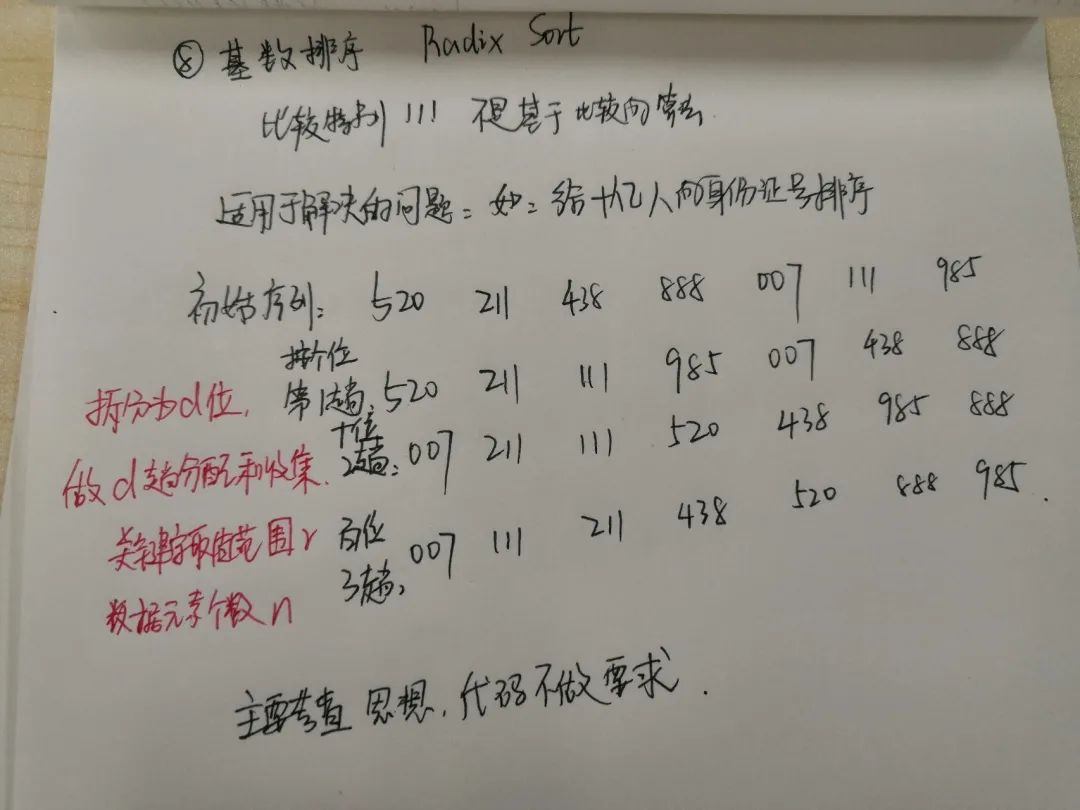 ⑧ 基数排序 Radix Sort
比较特别 !!! 不是基于比较的算法.
适用于解决的问题: 如: 给十亿人的身份证号排序
初始序列: 520 211 438 888 007 111 985
按个位
拆分为d位, 第1趟, 520 211 111 985 007 438 888
十位
做d趟分配和收集. 2趟: 007 211 111 520 438 985 888
关键字取值范围r 百位
3趟, 007 111 211 438 520 888 985.
数据元素个数n
主要考查 思想, 代码不做要求.